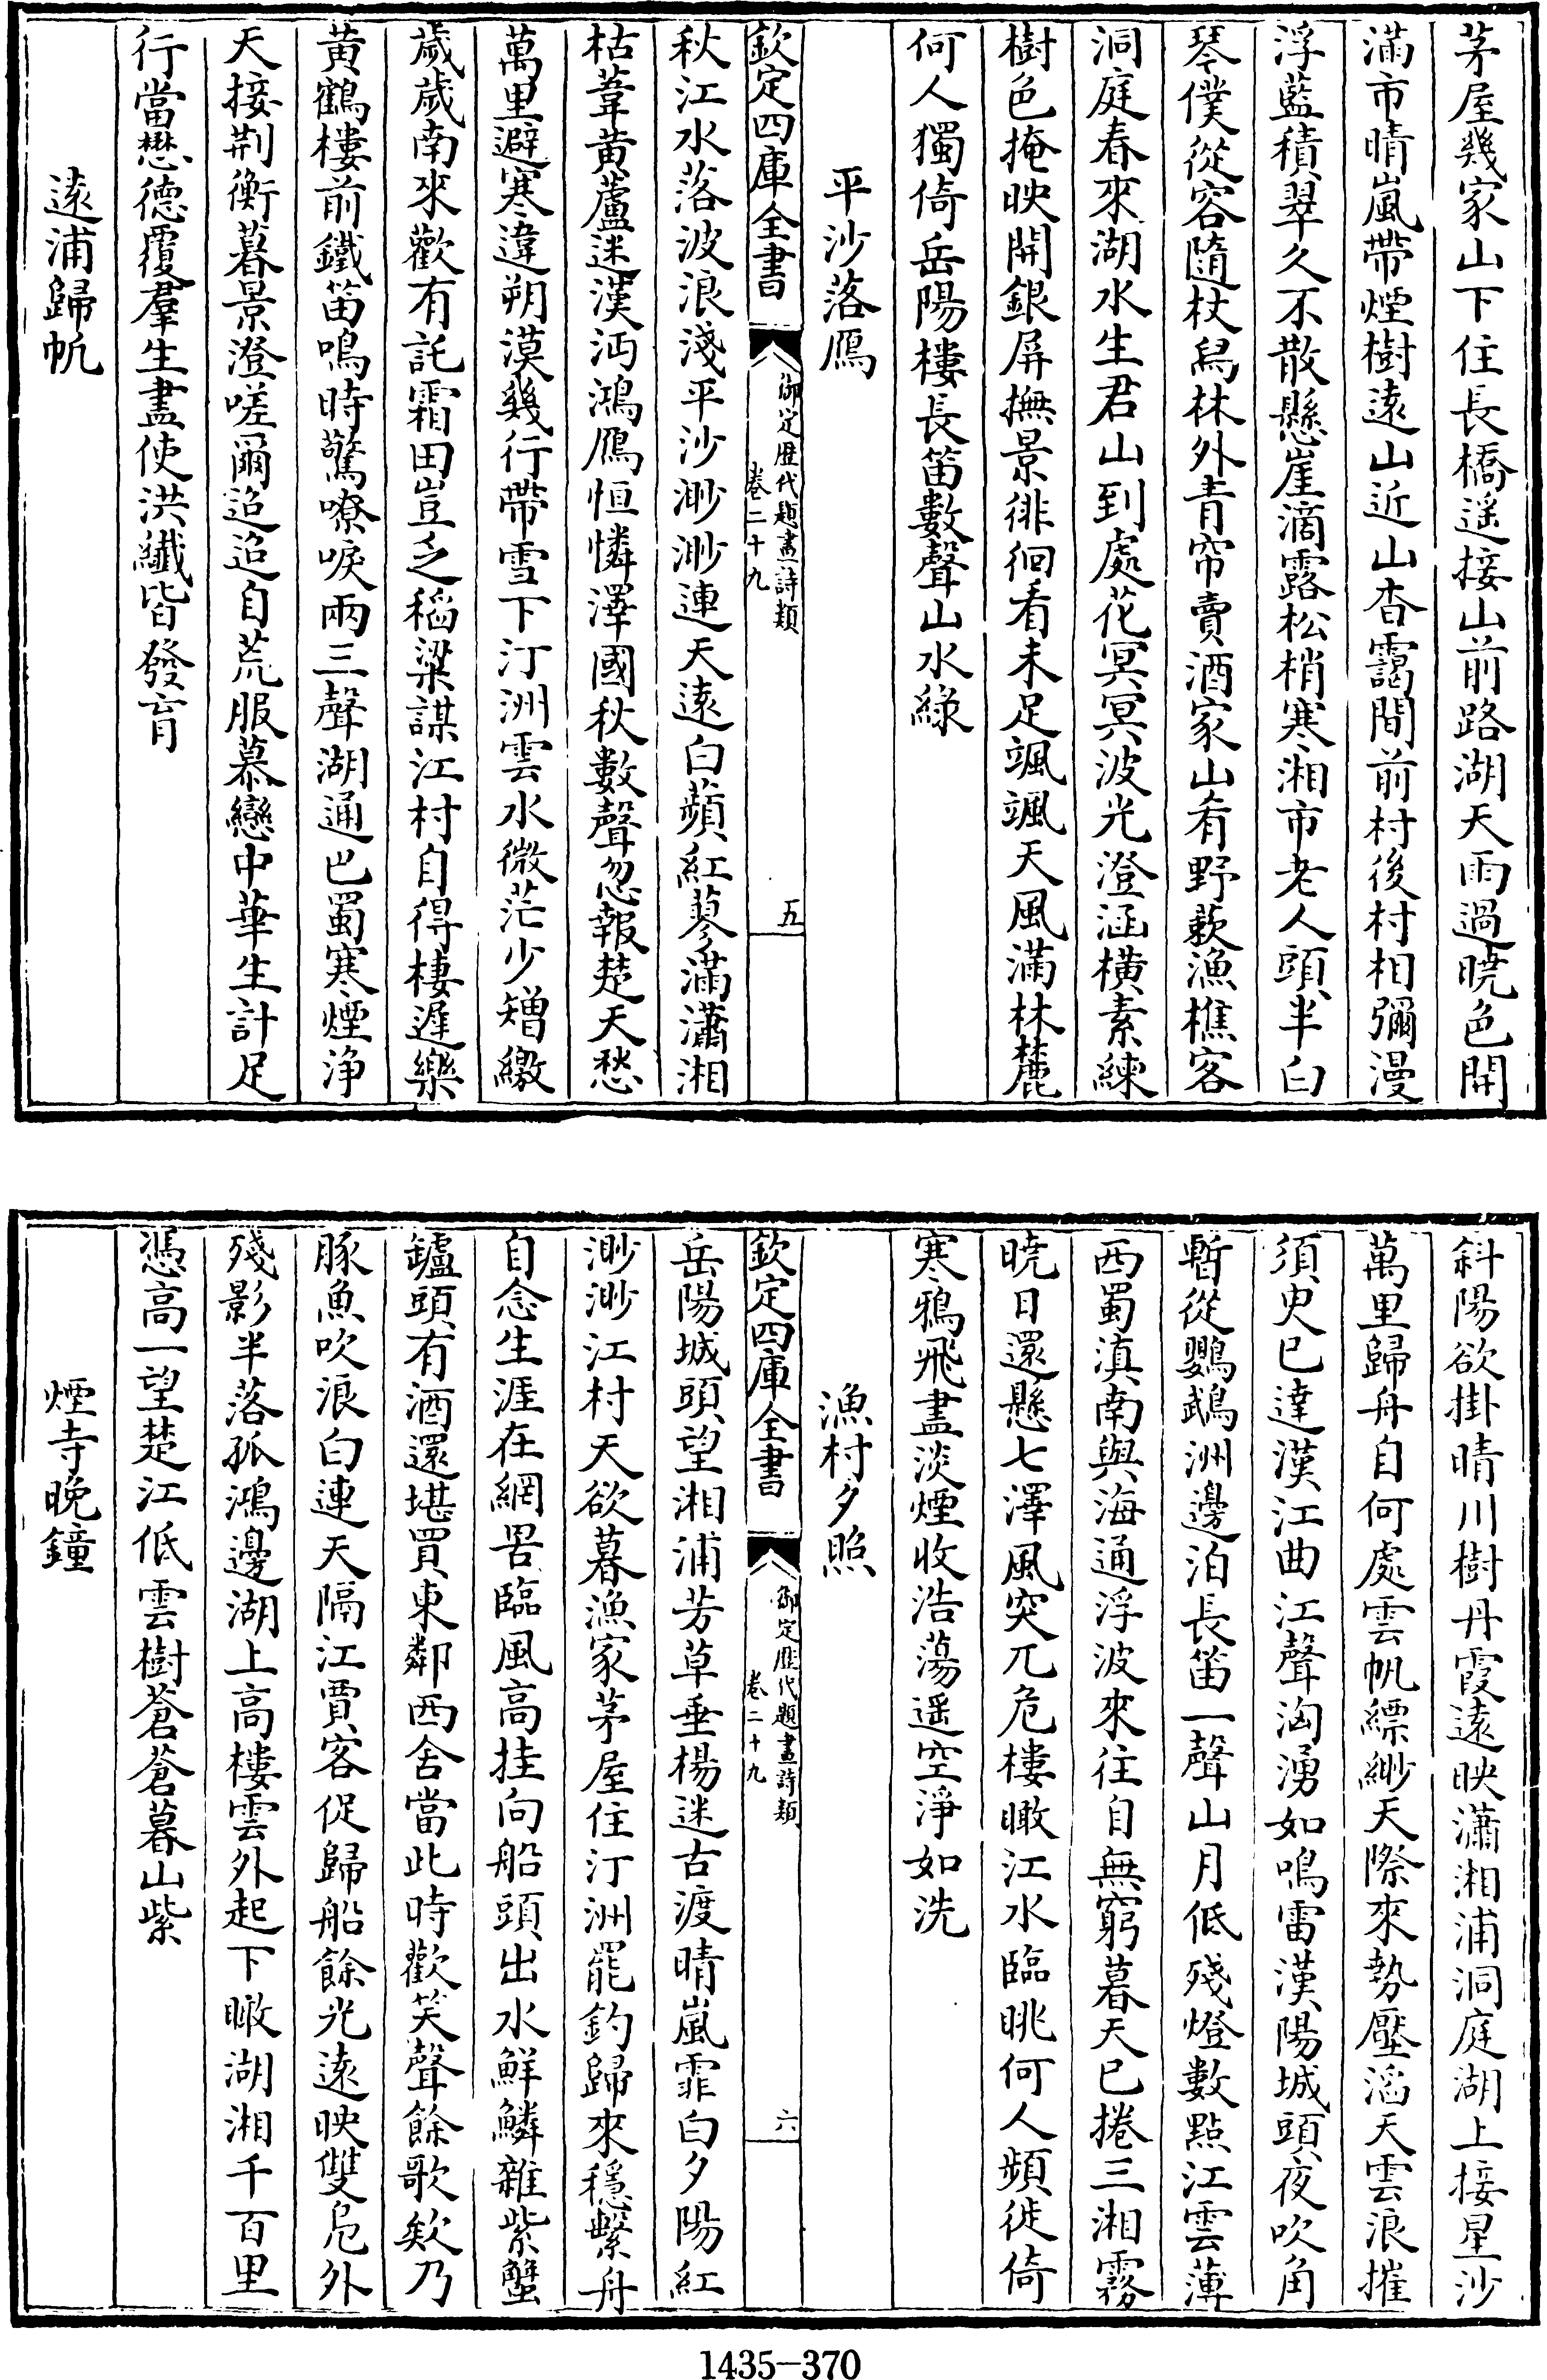 茅屋幾家山下住長橋遥接山前路湖天雨過曉色開
滿市晴嵐帶煙樹遠山近山杳靄間前村後村相彌漫
浮藍積翠久不散懸崖滴露松梢寒湘市老人頭半白
琴僕從容隨杖舄林外青帘賣酒家山肴野蔌漁樵客
洞庭春來湖水生君山到處花冥冥波光澄涵横素練
樹色掩映開銀屏撫景徘徊看未足颯颯天風滿林麓
何人獨倚岳陽樓長笛數聲山水緑
平沙落鴈
欽定四庫全書
御定歴代題畫詩類
卷二十九
五
秋江水落波浪淺平沙渺渺連天遠白蘋紅蓼滿瀟湘
枯葦黄蘆迷漢沔鴻鴈恒憐澤國秋數聲忽報楚天愁
萬里避寒違朔漠幾行帶雪下汀洲雲水微茫少矰繳
歲歲南來歡有託霜田豈乏稻粱謀江村自得棲遲樂
黄鶴樓前鐵笛鳴時驚嘹唳兩三聲湖通巴蜀寒煙浄
天接荆衡暮景澄嗟爾迢迢自荒服慕戀中華生計足
行當懋德覆羣生盡使洪纖皆發育
遠浦歸帆
斜陽欲掛晴川樹丹霞遠映瀟湘浦洞庭湖上接星沙
萬里歸舟自何處雲帆縹緲天際來勢壓滔天雲浪摧
須臾已達漢江曲江聲洶湧如鳴雷漢陽城頭夜吹角
暫從鸚鵡洲邊泊長笛一聲山月低殘燈數點江雲薄
西蜀滇南與海通浮波來往自無窮暮天已捲三湘霧
曉日還懸七澤風突兀危樓瞰江水臨眺何人頻徙倚
寒鴉飛盡淡煙收浩蕩遥空淨如洗
漁村夕照
欽定四庫全書
御定歴代題畫詩類
卷二十九
六
岳陽城頭望湘浦芳草垂楊迷古渡晴嵐霏白夕陽紅
渺渺江村天欲暮漁家茅屋住汀洲罷釣歸來穩繫舟
自念生涯在網罟臨風高挂向船頭出水鮮鱗雜紫蟹
鑪頭有酒還堪買東鄰西舍當此時歡笑聲餘歌欸乃
豚魚吹浪白連天隔江賈客促歸船餘光遠映雙鳬外
殘影半落孤鴻邊湖上高樓雲外起下瞰湖湘千百里
憑高一望楚江低雲樹蒼蒼暮山紫
煙寺晚鐘
1435-370